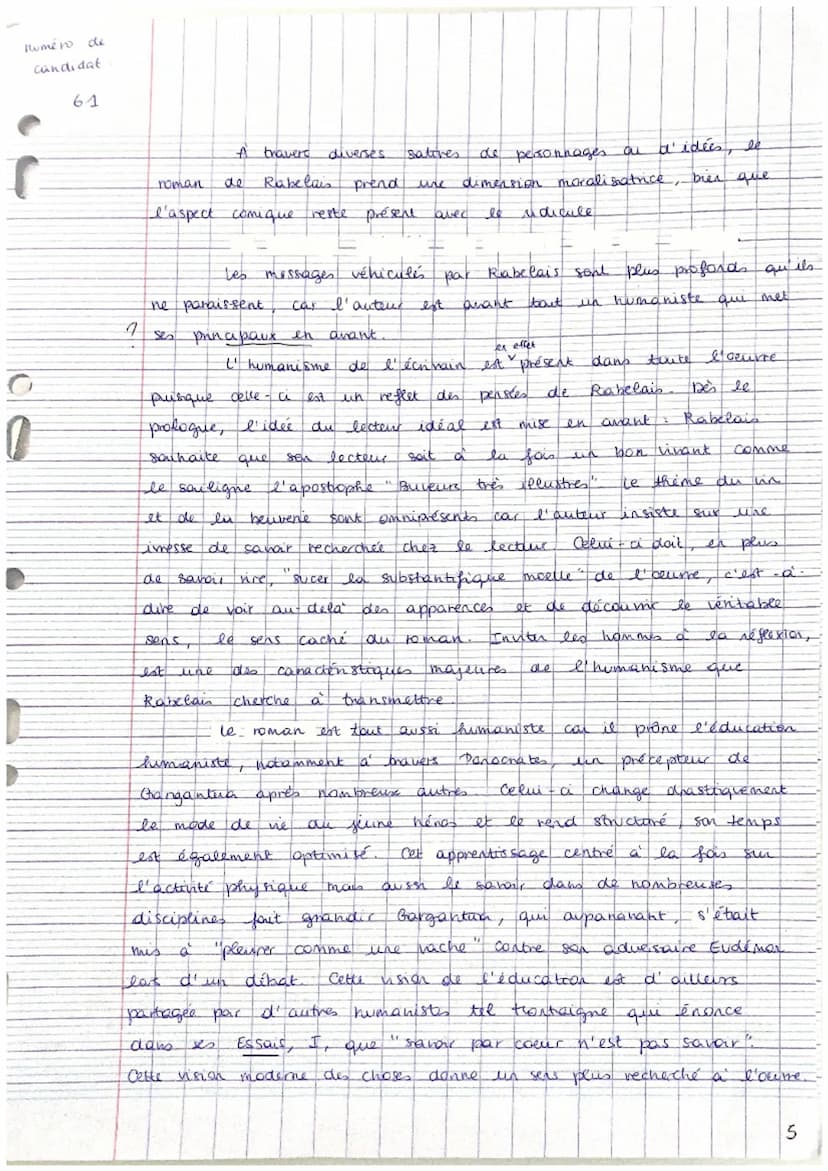 Numéro de
candidat
61
A travers diverses satires de personnages ou d'idées, le
roman de Rabelais prend une dimension moralisatrice, bien que
l'aspect comique reste présent avec le ridicule
Les messages véhiculés par Rabelais sont plus profonds qu'ils
ne paraissent, car l'auteur est avant tout un humaniste qui met
? ses principaux en avant.
en effet
L'humanisme de l'écrivain est présent dans toute l'oeuvre
puisque celle-ci est un reflet des pensées de Rabelais. Dès le
prologue, l'idée du lecteur idéal est mise en avant : Rabelais
souhaite que son lecteur soit à la fois un bon vivant comme
le souligne l'apostrophe "Buveurs très illustres". Le thème du vin
et de la beuverie sont omniprésents car l'auteur insiste sur une
ivresse de savoir recherchée chez le lecteur. Celui-ci doit, en plus
de savoir rire, "sucer la substantifique moelle" de l'oeuvre, c'est-à-
dire de voir au-delà des apparences et de découvrir le véritable
sens, le sens caché du roman. Inviter les hommes à la réflexion,
est une des caractéristiques majeures de l'humanisme que
Rabelais cherche à transmettre.
Le roman est tout aussi humaniste car il prône l'éducation
humaniste, notamment à travers Ponocrates, un précepteur de
Gargantua après nombreux autres. Celui-ci change drastiquement
le mode de vie du jeune héros et le rend structuré, son temps
est également optimisé. Cet apprentissage centré à la fois sur
l'activité physique mais aussi le savoir dans de nombreuses
disciplines fait grandir Gargantua, qui auparavant, s'était
mis à "pleurer comme une vache" contre son adversaire Eudémon
lors d'un débat. Cette vision de l'éducation est d'ailleurs
partagée par d'autres humanistes tel Montaigne qui énonce
dans ses Essais, I, que "savoir par coeur n'est pas savoir".
Cette vision moderne des choses donne un sens plus recherché à l'oeuvre.
5